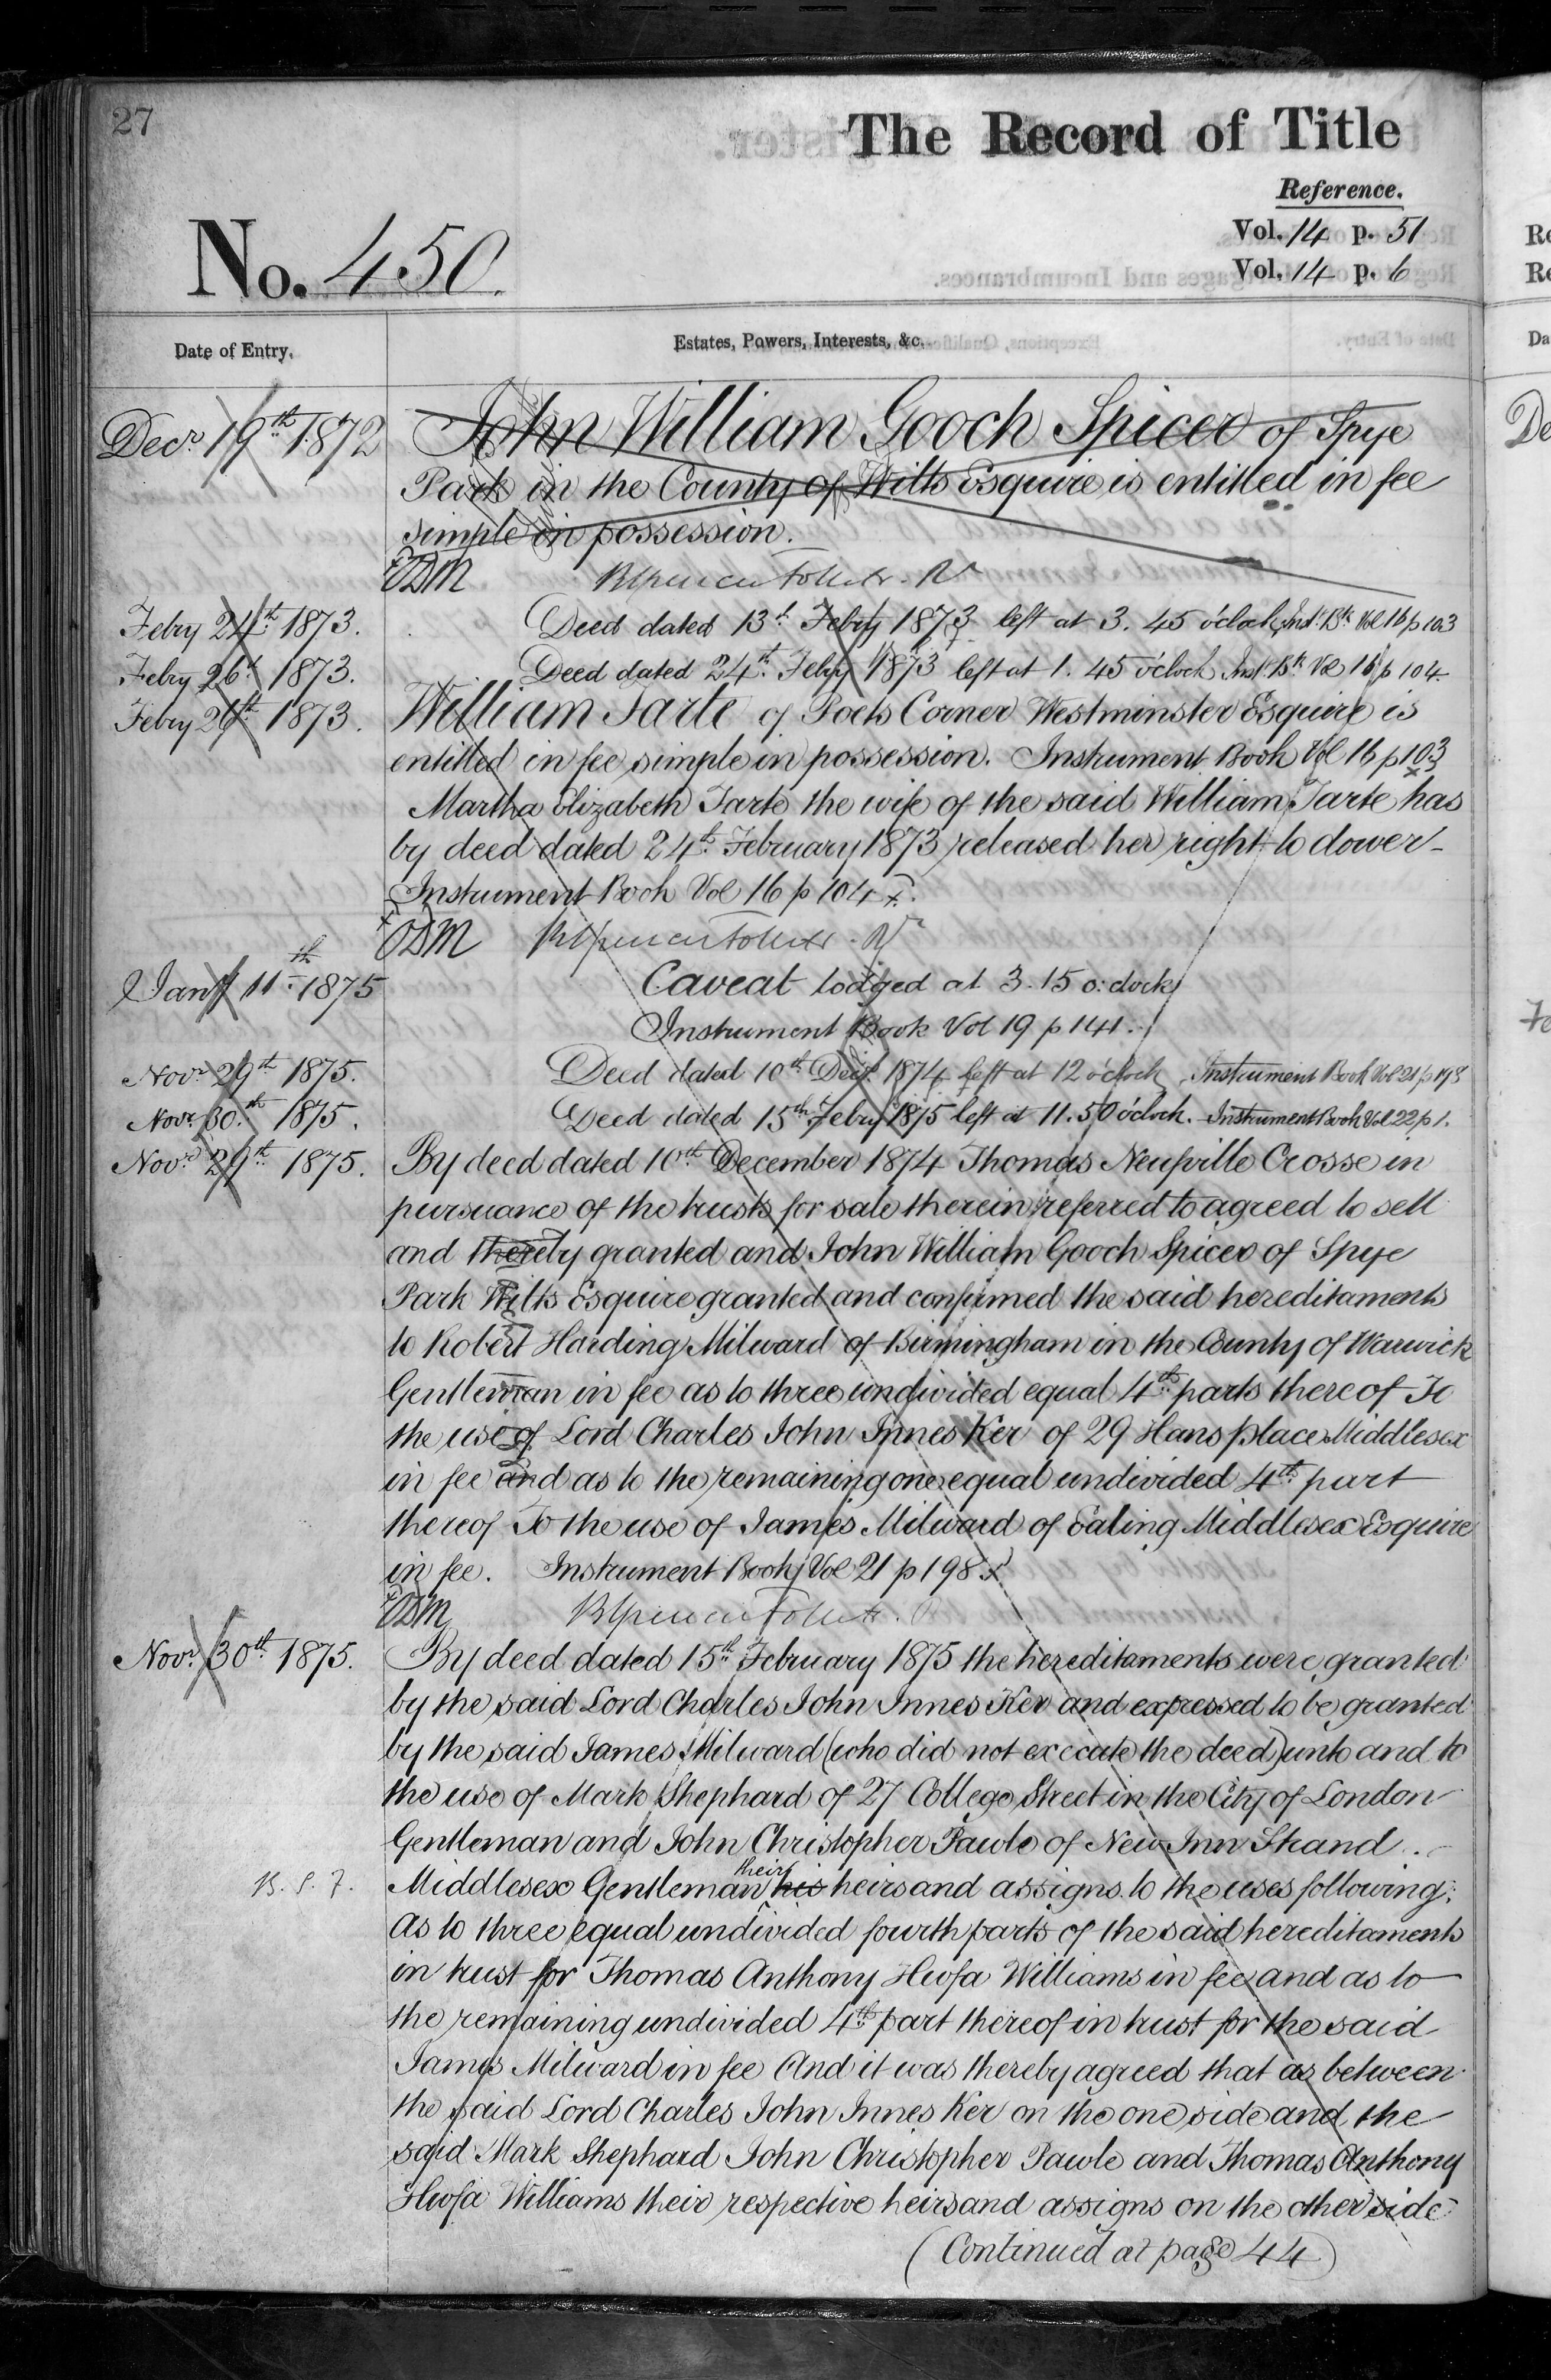 27
The Record of Title
Reference.
Vol. 14 p. 51
Vol. 14 p. 6
No. 450.
Date of Entry.
Estates, Powers, Interests, &c.
Decr. 19th 1872
John William Gooch Spicer of Spye
Park in the County of Wilts Esquire is entitled in fee
simple in possession.
Febry 24th 1873.
Deed dated 13th Febry 1873 left at 3.45 o'clock, Inst. Bk. Vol 16 p 103
Febry 26th 1873.
Deed dated 24th Febry 1873 left at 1.45 o'clock Inst. Bk Vol 16 p 104.
Febry 1873.
William Tarte of Poets Corner Westminster Esquire is
entitled in fee simple in possession. Instrument Book Vol 16 p 103
Martha Elizabeth Tarte the wife of the said William Tarte has
by deed dated 24th February 1873 released her right to dower -
Instrument Book Vol 16 p 104 x.
Jany 11th 1875
Caveat lodged at 3.15 o:clock
Instrument Book Vol 19 p 141.
Novr. 29th 1875.
Deed dated 10th Decr. 1874 left at 12 o'clock, Instrument Book Vol 21 p 198
Novr. 30th 1875.
Deed dated 15th Febry 1875 left at 11.50 o'clock. Instrument Book Vol 22 p 1.
Novr. 29th 1875.
By deed dated 10th December 1874 Thomas Neufville Crosse in
pursuance of the trusts for sale therein referred to agreed to sell
and thereby granted and John William Gooch Spicer of Spye
Park Wilts Esquire granted and confirmed the said hereditaments
to Robert Harding Milward of Birmingham in the County of Warwick
Gentleman in fee as to three undivided equal 4th parts thereof To
the use of Lord Charles John Innes Ker of 29 Hans place Middlesex
in fee and as to the remaining one equal undivided 4th part
thereof To the use of James Milward of Ealing Middlesex Esquire
in fee. Instrument Book Vol 21 p 198 x
Novr. 30th 1875.
By deed dated 15th February 1875 the hereditaments were granted
by the said Lord Charles John Innes Ker and expressed to be granted
by the said James Milward (who did not execute the deed) unto and to
the use of Mark Shephard of 27 College Street in the City of London
Gentleman and John Christopher Pawle of New Inn Strand
Middlesex Gentleman his their heirs and assigns to the uses following;
as to three equal undivided fourth parts of the said hereditaments
in trust for Thomas Anthony Hwfa Williams in fee and as to
the remaining undivided 4th part thereof in trust for the said
James Milward in fee And it was thereby agreed that as between
the said Lord Charles John Innes Ker on the one side and the
said Mark Shephard John Christopher Pawle and Thomas Anthony
Hwfa Williams their respective heirs and assigns on the other side
(Continued at page 44)